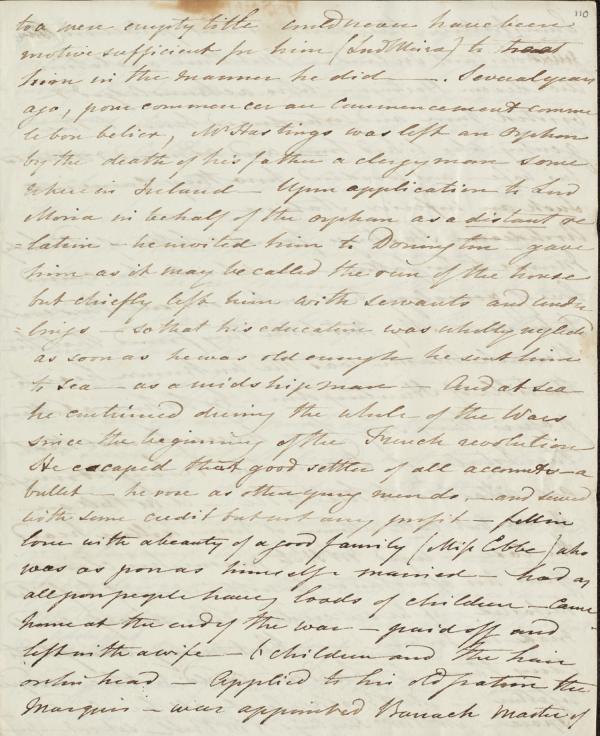 110
to a mere empty title could never have been
motive sufficient for him (Lord Moira) to treat
him in the manner he did — . Several years
ago, pour commencer au Commencement comme
le bon belier, Mr Hastings was left an Orphan
by the death of his father a clergyman some
where in Ireland — Upon application to Lord
Moria in behalf of the orphan as a distant re
=lation — he invited him to Donington gave
him as it may be called the run of the house
but chiefly left him with servants and under
=lings — so that his education was wholly neglected
as soon as he was old enough he sent him
to sea — as a midshipman — And at sea
he continued during the whole of the Wars
since the beginning of the French revolution
He escaped that good settler of all accounts — a
bullet — he rose as other young men do, — and served
with some credit but not any profit — fell in
love with a beauty of a good family (Miss Cobbe) who
was as poor as himself married — had as
all poor people have, loads of children — Came
home at the end of the war — paid off and
left with a wife — 6 children and the hair
on his head — Applied to his old patron the
Marquis — was appointed Barrack Master of